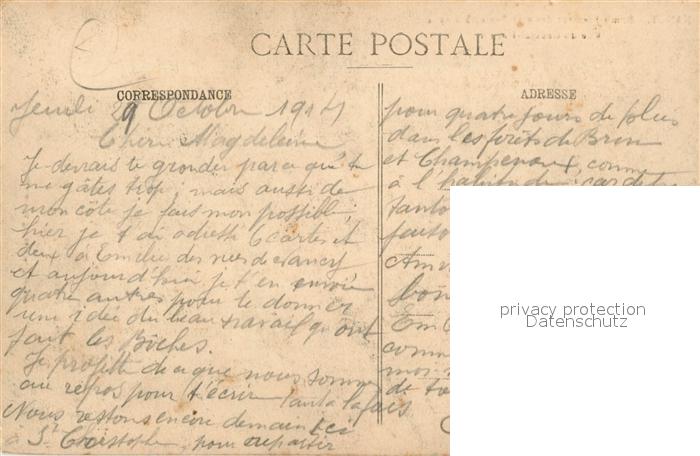 CARTE POSTALE
CORRESPONDANCE
ADRESSE
Jeudi 29 Octobre 1914
Chère Magdeleine
Je devrais te gronder parce qu'tu
me gâtes trop; mais aussi de
mon côté je fais mon possible;
hier je t'ai adressé 6 cartes et
deux à Emilie des rues de Nancy
et aujourd'hui je t'en envoie
quatre autres pour te donner
une idée du beau travail qu'ont
fait les Bôches.
Je profite de ce que nous sommes
au repos pour t'écrire tant à la fois
Nous restons encore demain ici
à St Christophe, pour repartir
pour quatre jours de plus
dans les forêts de Brin
et Champenoux, comme
à l'habitude; car
tanto
faiso
Am
bon
Em
comm
moi
de to
privacy protection
Datenschutz